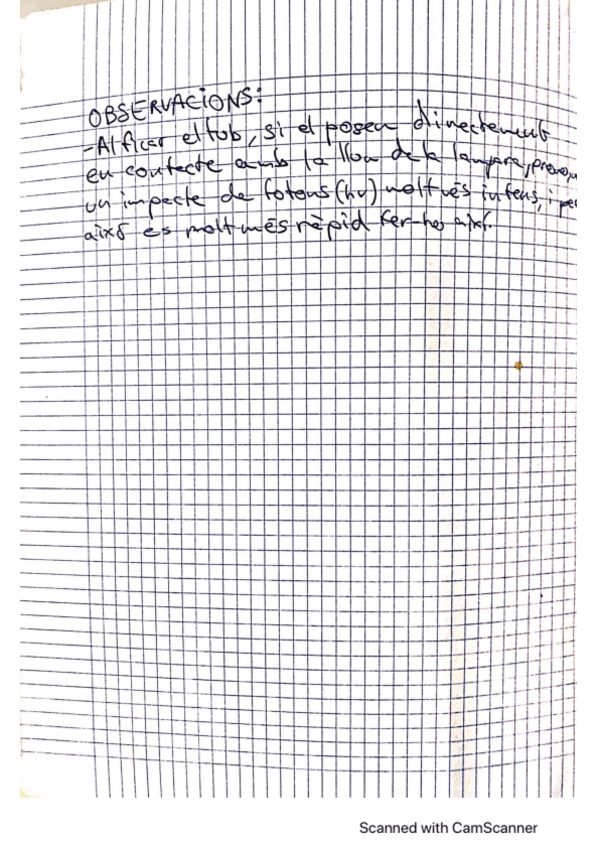 OBSERVACIONS:
-Al ficar el tub, si el posem directament
en contacte amb la llum de la lampara,
un impacte de fotons (hv) molt més intens, i per
això es molt més ràpid fer-ho així.
Scanned with CamScanner